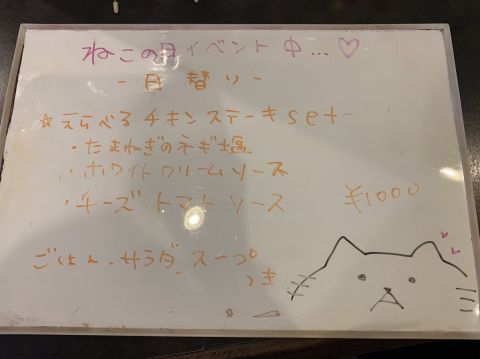 ねこの日イベント中...♡
-日替り-
☆えらべるチキンステーキset
・たまねぎのネギ塩
・ホワイトクリームソース
・チーズトマトソース
¥1000
ごはん.サラダ.スープ
つき